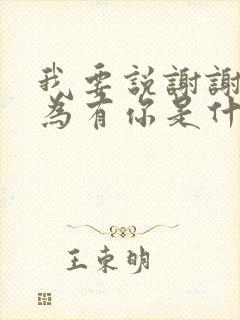 我要説謝謝
為有你是什
王東明